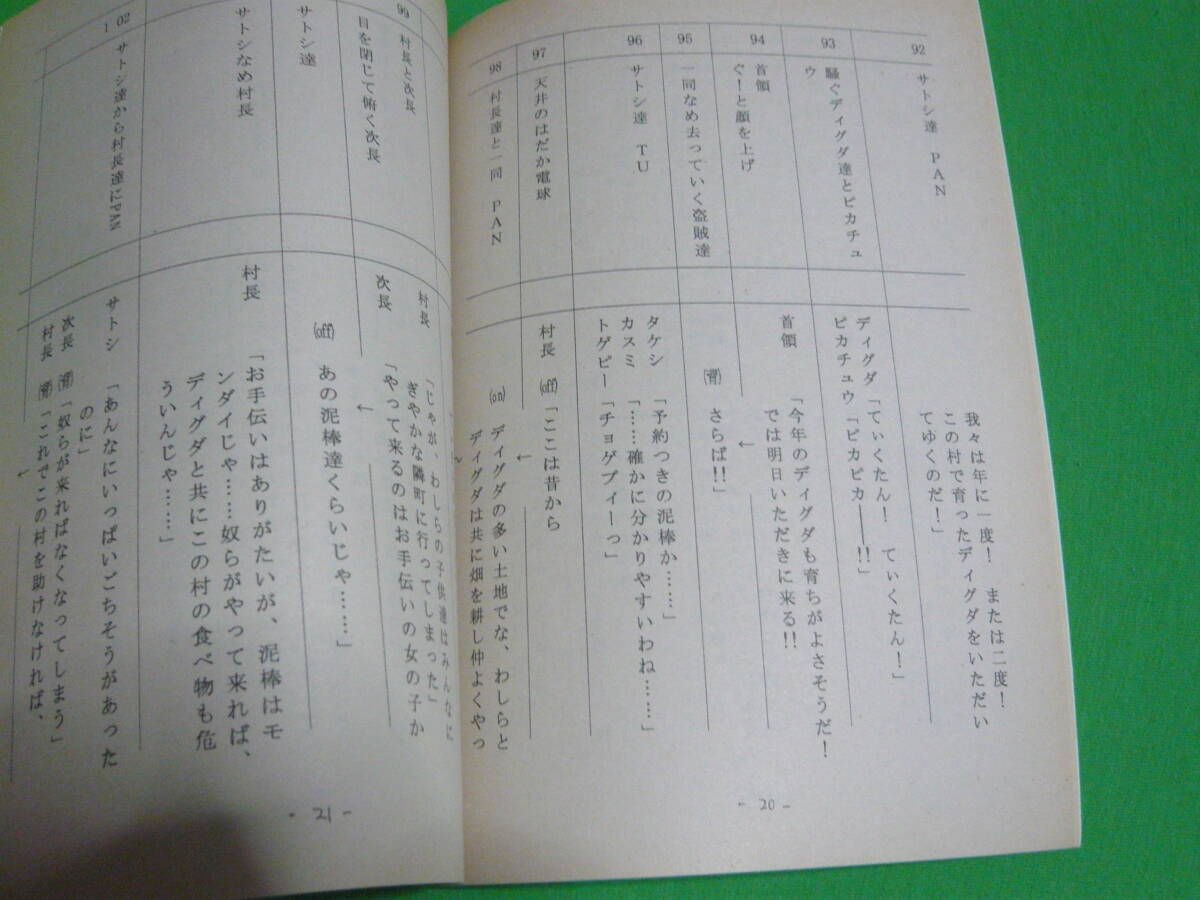 92
サトシ達 PAN
我々は年に一度! または二度!
この村で育ったディグダをいただい
てゆくのだ!」
93
騒ぐディグダ達とピカチュ
ウ
ディグダ「てぃくたん! てぃくたん!」
ピカチュウ「ピカピカ――!!」
94
首領
ぐ!と顔を上げ
首領 「今年のディグダも育ちがよさそうだ!
では明日いただきに来る!!
↓
95
一同なめ去っていく盗賊達
(背) さらば!!」
96
サトシ達 TU
タケシ 「予約つきの泥棒か……」
カスミ 「……確かに分かりやすいわね……」
トゲピー「チョゲプィーっ」
97
天井のはだか電球
村長 (off)「ここは昔から
↓
98
村長達と一同 PAN
(on) ディグダの多い土地でな、わしらと
ディグダは共に畑を耕し仲よくやっ
- 20 -
99
村長と次長
村長 「じゃが、わしらの子供達はみんなに
ぎやかな隣町に行ってしまった」
目を閉じて俯く次長
次長 「やって来るのはお手伝いの女の子か
↓
サトシ達
(off) あの泥棒達くらいじゃ……」
サトシなめ村長
村長 「お手伝いはありがたいが、泥棒はモ
ンダイじゃ……奴らがやって来れば、
ディグダと共にこの村の食べ物も危
ういんじゃ……」
102
サトシ達から村長達にPAN
サトシ 「あんなにいっぱいごちそうがあった
のに」
次長 (背)「奴らが来ればなくなってしまう」
村長 (背)「これでこの村を助けなければ、
↓
- 21 -